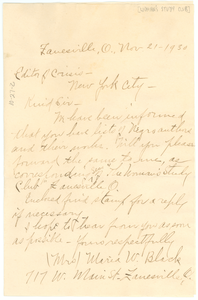 Zanesville, O., Nov 21-1930
Editor of Crisis-
New York City-
Kind Sir-
I have been informed
that you have list of Negro authors
and their works. Will you please
forward the same to me, as
corresponding Sec. Woman's Study
Club Zanesville O.
Enclosed find stamp for a reply
if necessary.
I hope to hear from you as soon
as possible- yours respectfully
(Mrs) Maria W. Black
717 W. Main St. Zanesville, O.